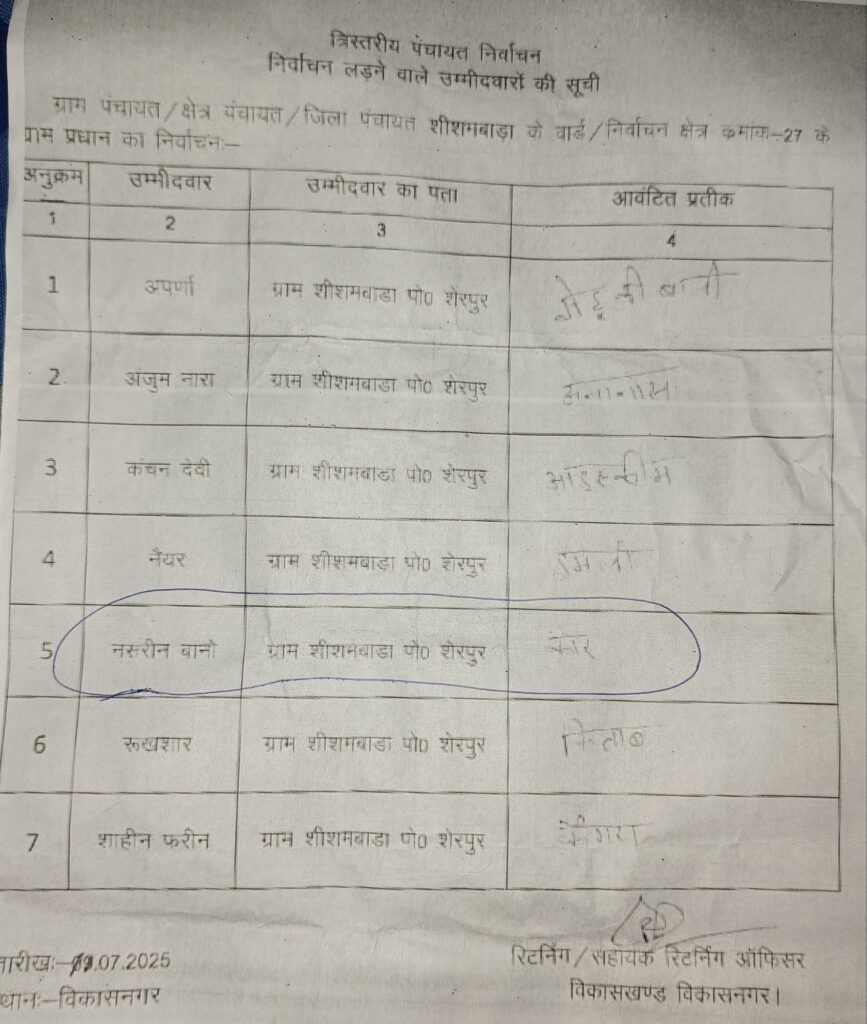 त्रिस्तरीय पंचायत निर्वाचन
निर्वाचन लड़ने वाले उम्मीदवारों की सूची
ग्राम पंचायत/क्षेत्र पंचायत/जिला पंचायत शीशमबाड़ा के वार्ड/निर्वाचन क्षेत्र कमांक-27 के
ग्राम प्रधान का निर्वाचनः-
अनुक्रम उम्मीदवार उम्मीदवार का पता आवंटित प्रतीक
1 2 3 4
1 अपर्णा ग्राम शीशमबाडा पो0 शेरपुर गेहू की बाली
2. अंजुम नारा ग्राम शीशमबाडा पो0 शेरपुर अनानास
3 कंचन देवी ग्राम शीशमबाडा पो0 शेरपुर आइसक्रीम
4 नैयर ग्राम शीशमबाडा पो0 शेरपुर इमली
5 नसरीन बानो ग्राम शीशमबाडा पो0 शेरपुर कार
6 रूखशार ग्राम शीशमबाडा पो0 शेरपुर किताब
7 शाहीन फरीन ग्राम शीशमबाडा पो0 शेरपुर
तारीखः- .07.2025 रिटर्निंग/सहायक रिटर्निंग ऑफिसर
स्थानः-विकासनगर विकासखण्ड विकासनगर।